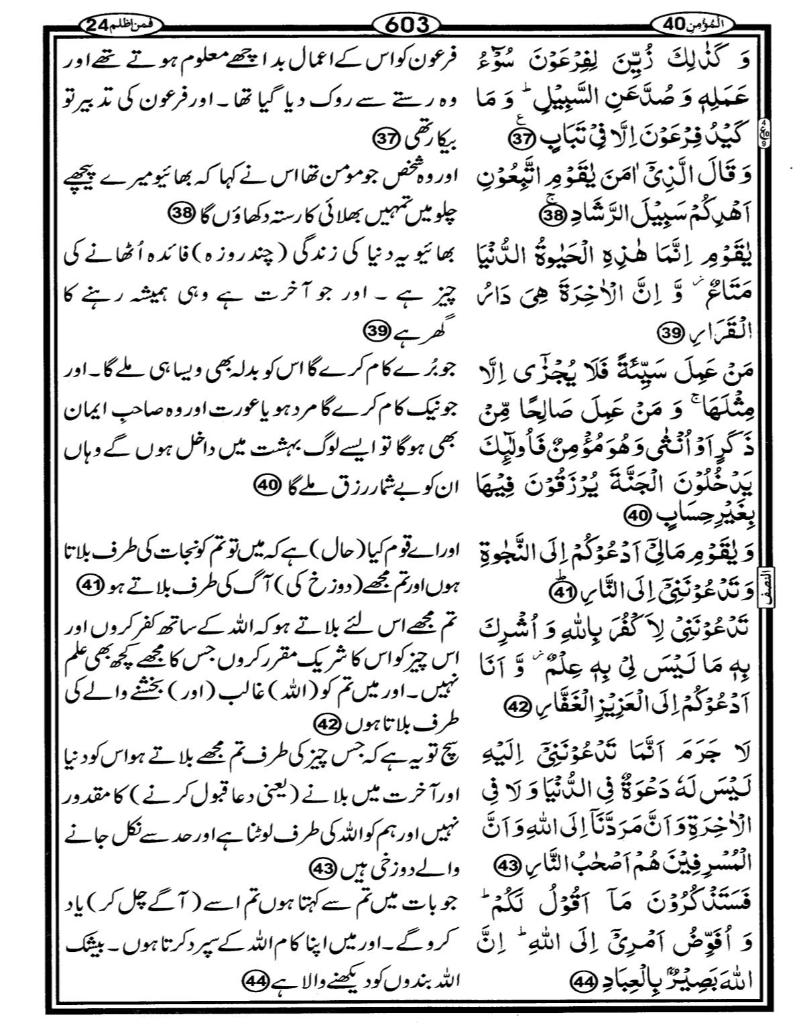 المؤمن 40
603
فمن اظلم 24
وَ كَذٰلِكَ زُيِّنَ لِفِرْعَوْنَ سُوْٓءُ
عَمَلِهٖ وَ صُدَّ عَنِ السَّبِيْلِ ؕ وَ مَا
كَيْدُ فِرْعَوْنَ اِلَّا فِيْ تَبَابٍ ۧ 37
وَ قَالَ الَّذِيْۤ اٰمَنَ يٰقَوْمِ اتَّبِعُوْنِ
اَهْدِكُمْ سَبِيْلَ الرَّشَادِ ۚ 38
يٰقَوْمِ اِنَّمَا هٰذِهِ الْحَيٰوةُ الدُّنْيَا
مَتَاعٌ ؗ وَّ اِنَّ الْاٰخِرَةَ هِيَ دَارُ
الْقَرَارِ 39
مَنْ عَمِلَ سَيِّئَةً فَلَا يُجْزٰۤى اِلَّا
مِثْلَهَا ۚ وَ مَنْ عَمِلَ صَالِحًا مِّنْ
ذَكَرٍ اَوْ اُنْثٰى وَ هُوَ مُؤْمِنٌ فَاُولٰٓئِكَ
يَدْخُلُوْنَ الْجَنَّةَ يُرْزَقُوْنَ فِيْهَا
بِغَيْرِ حِسَابٍ 40
وَ يٰقَوْمِ مَا لِيْۤ اَدْعُوْكُمْ اِلَى النَّجٰوةِ
وَ تَدْعُوْنَنِيْۤ اِلَى النَّارِ ؕ 41
تَدْعُوْنَنِيْ لِاَكْفُرَ بِاللّٰهِ وَ اُشْرِكَ
بِهٖ مَا لَيْسَ لِيْ بِهٖ عِلْمٌ ؗ وَّ اَنَا
اَدْعُوْكُمْ اِلَى الْعَزِيْزِ الْغَفَّارِ 42
لَا جَرَمَ اَنَّمَا تَدْعُوْنَنِيْۤ اِلَيْهِ
لَيْسَ لَهٗ دَعْوَةٌ فِي الدُّنْيَا وَ لَا فِي
الْاٰخِرَةِ وَ اَنَّ مَرَدَّنَاۤ اِلَى اللّٰهِ وَ اَنَّ
الْمُسْرِفِيْنَ هُمْ اَصْحٰبُ النَّارِ 43
فَسَتَذْكُرُوْنَ مَاۤ اَقُوْلُ لَكُمْ ؕ
وَ اُفَوِّضُ اَمْرِيْۤ اِلَى اللّٰهِ ؕ اِنَّ
اللّٰهَ بَصِيْرٌۢ بِالْعِبَادِ 44
النصف
فرعون کو اس کے اعمال بد اچھے معلوم ہوتے تھے اور
وہ رستے سے روک دیا گیا تھا۔ اور فرعون کی تدبیر تو
بیکار تھی 37
اور وہ شخص جو مومن تھا اس نے کہا کہ بھائیو میرے پیچھے
چلو میں تمہیں بھلائی کا رستہ دکھاؤں گا 38
بھائیو یہ دنیا کی زندگی (چند روزہ) فائدہ اُٹھانے کی
چیز ہے ۔ اور جو آخرت ہے وہی ہمیشہ رہنے کا
گھر ہے 39
جو بُرے کام کرے گا اس کو بدلہ بھی ویسا ہی ملے گا۔ اور
جو نیک کام کرے گا مرد ہو یا عورت اور وہ صاحب ایمان
بھی ہوگا تو ایسے لوگ بہشت میں داخل ہوں گے وہاں
ان کو بے شمار رزق ملے گا 40
اور اے قوم کیا (حال) ہے کہ میں تو تم کو نجات کی طرف بلاتا
ہوں اور تم مجھے (دوزخ کی) آگ کی طرف بلاتے ہو 41
تم مجھے اس لئے بلاتے ہو کہ اللہ کے ساتھ کفر کروں اور
اس چیز کو اس کا شریک مقرر کروں جس کا مجھے کچھ بھی علم
نہیں۔ اور میں تم کو (اللہ) غالب (اور) بخشنے والے کی
طرف بلاتا ہوں 42
سچ تو یہ ہے کہ جس چیز کی طرف تم مجھے بلاتے ہو اس کو دنیا
اور آخرت میں بلانے (یعنی دعا قبول کرنے) کا مقدور
نہیں اور ہم کو اللہ کی طرف لوٹنا ہے اور حد سے نکل جانے
والے دوزخی ہیں 43
جو بات میں تم سے کہتا ہوں تم اسے (آگے چل کر) یاد
کرو گے۔ اور میں اپنا کام اللہ کے سپرد کرتا ہوں۔ بیشک
اللہ بندوں کو دیکھنے والا ہے 44